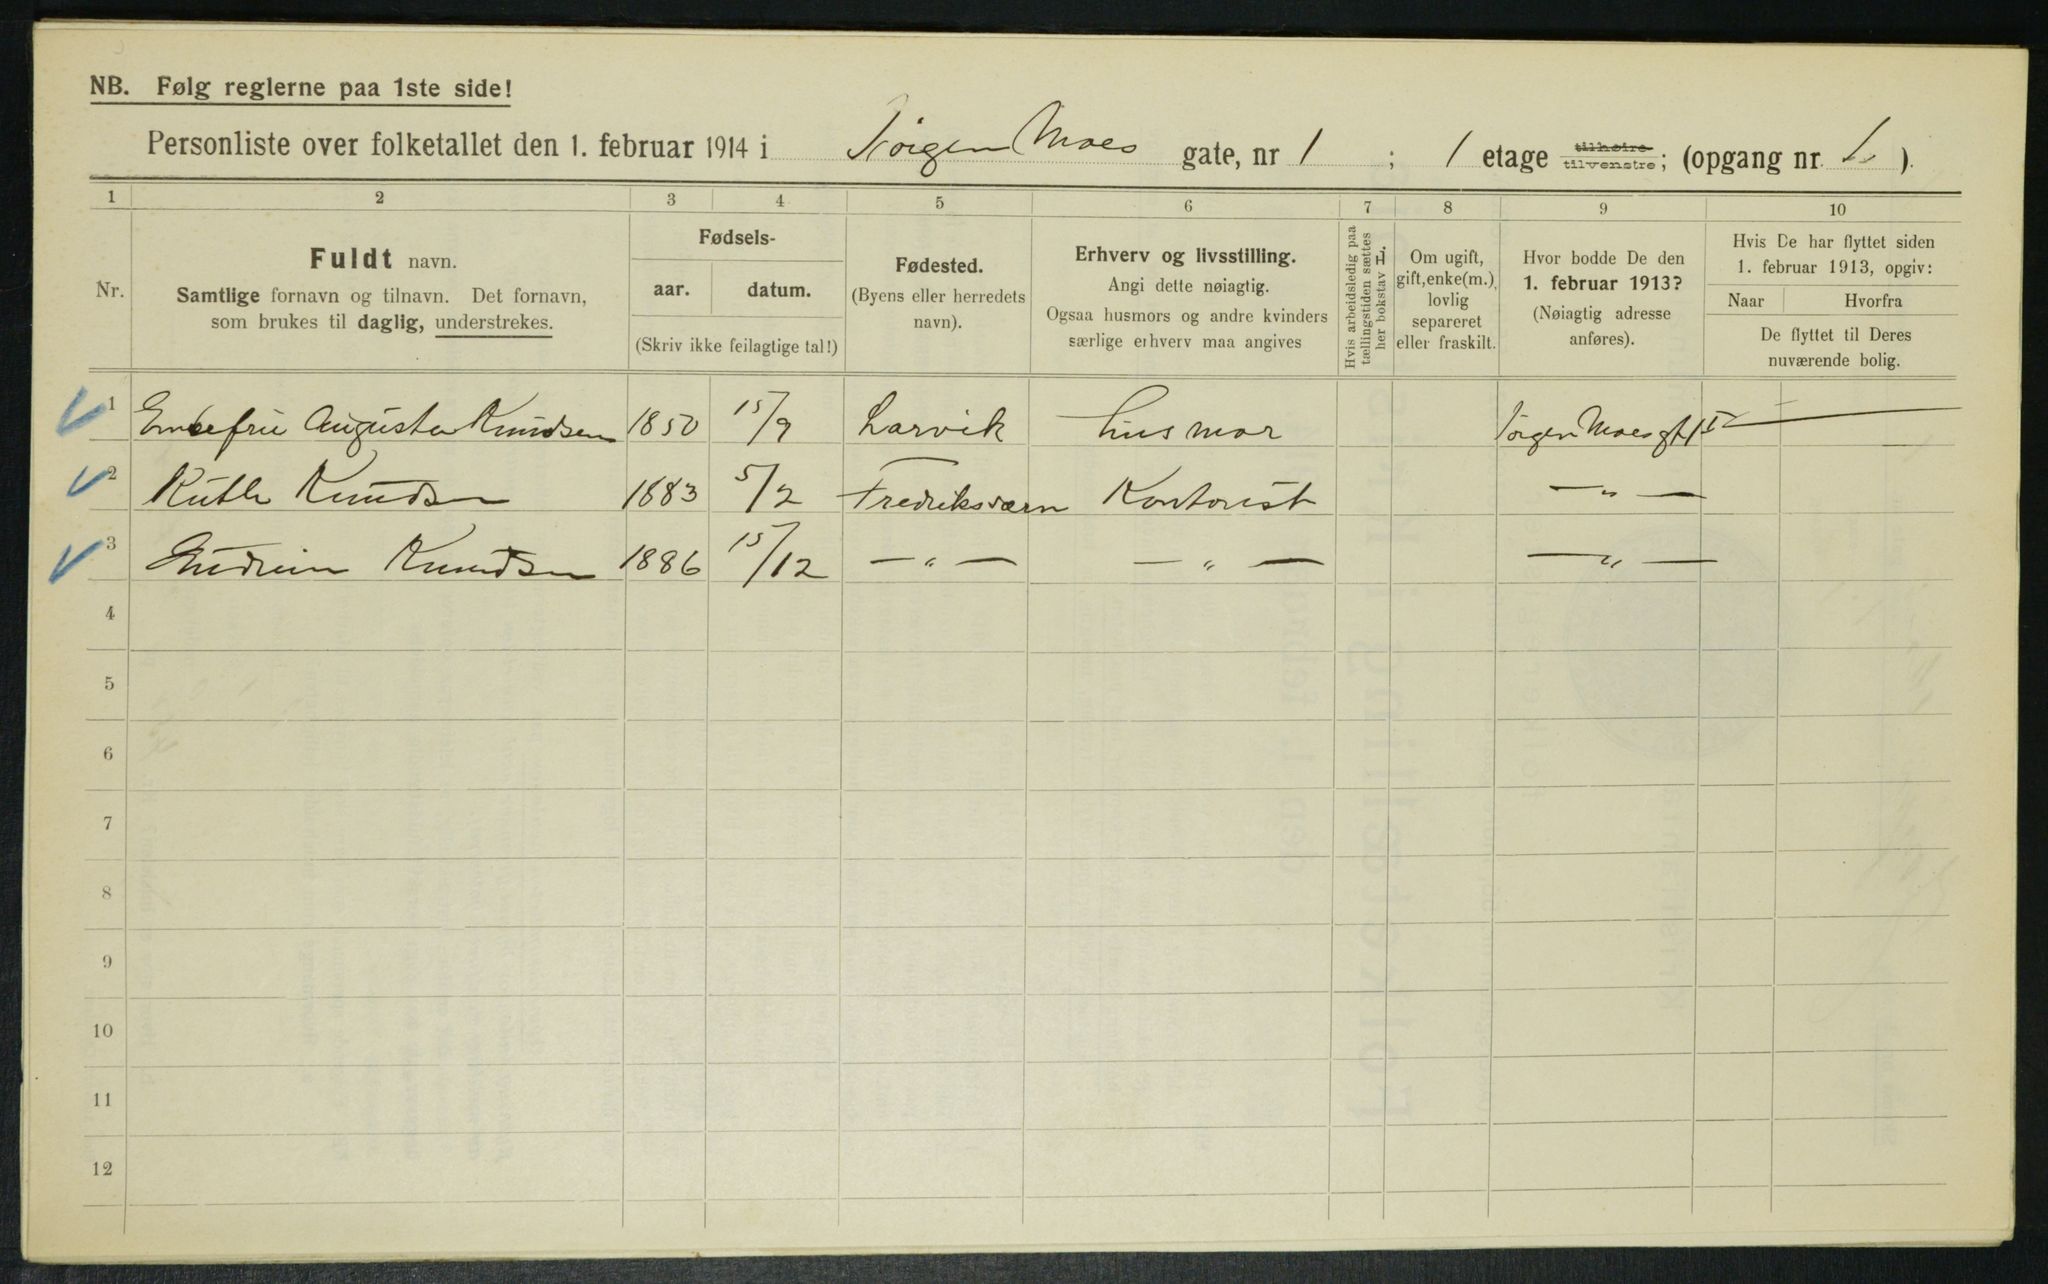 NB. Følg reglerne paa 1ste side!
Personliste over folketallet den 1. februar 1914 i Jørgen Moes gate, nr 1 ; 1 etage tilhøire tilvenstre; (opgang nr. 1 ).
1 2 3 4 5 6 7 8 9 10
Nr.
Fuldt navn.
Samtlige fornavn og tilnavn. Det fornavn,
som brukes til daglig, understrekes.
Fødsels-
aar. datum.
(Skriv ikke feilagtige tal!)
Fødested.
(Byens eller herredets
navn).
Erhverv og livsstilling.
Angi dette nøiagtig.
Ogsaa husmors og andre kvinders
særlige erhverv maa angives
Hvis arbeidsledig paa
tællingstiden sættes
her bokstav L.
Om ugift,
gift, enke(m.),
lovlig
separeret
eller fraskilt.
Hvor bodde De den
1. februar 1913?
(Nøiagtig adresse
anføres).
Hvis De har flyttet siden
1. februar 1913, opgiv:
Naar Hvorfra
De flyttet til Deres
nuværende bolig.
1 Enkefru Augusta Knudsen 1850 15/9 Larvik husmor Jørgen Moesgt 1 I
2 Ruth Knudsen 1883 5/2 Fredriksværn Kontorist — " —
3 Gudrun Knudsen 1886 15/12 — " — — " — — " —
4
5
6
7
8
9
10
11
12